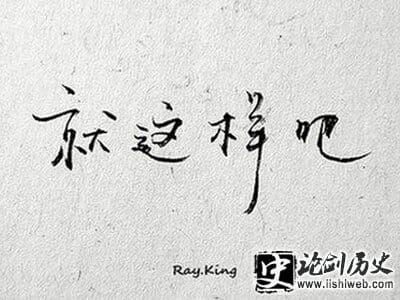 就这样吧
Ray.King
史 论剑历史
www.lishiweb.com